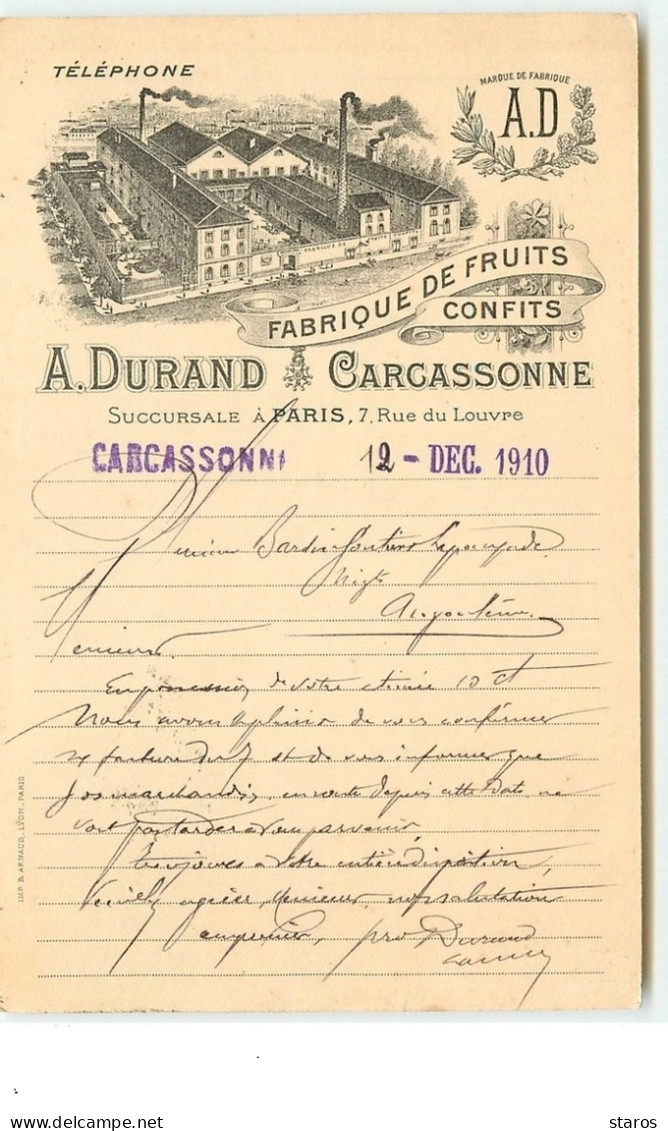 TÉLÉPHONE
MARQUE DE FABRIQUE
A.D
FABRIQUE DE FRUITS
CONFITS
A. DURAND CARCASSONNE
SUCCURSALE À PARIS, 7, Rue du Louvre
CARCASSONNE 12 - DEC. 1910
Messieurs Bardin
Angoulême
Messieurs
En possession de votre estimée 10 ct
Nous avons le plaisir de vous confirmer
facture du 7 et de vous informer que
les marchandises, en route depuis cette date ne
vont pas tarder à vous parvenir,
Toujours à votre entière disposition,
Veuillez agréer, Messieurs, nos salutations
empressées, pro Durand
IMP. B. ARNAUD, LYON-PARIS
staros